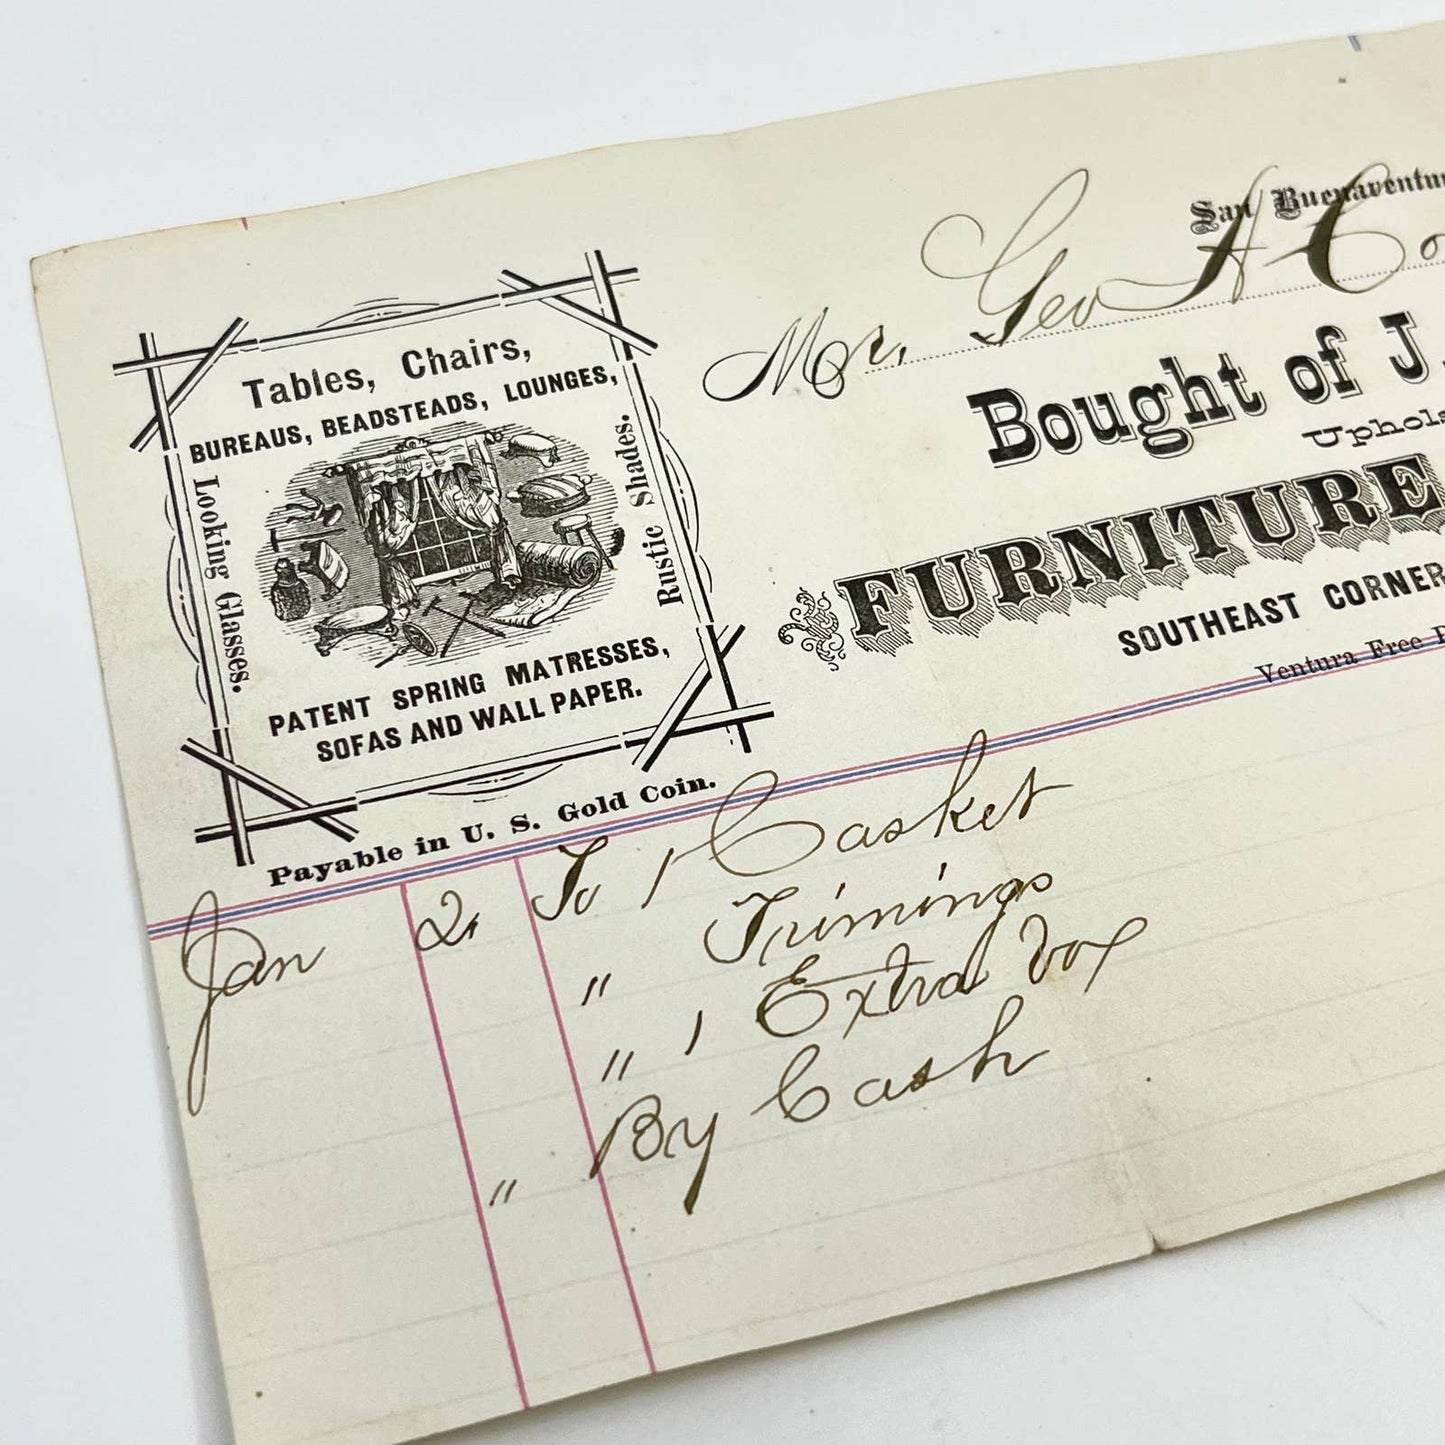 Tables, Chairs,
BUREAUS, BEADSTEADS, LOUNGES,
Looking Glasses.
Rustic Shades.
PATENT SPRING MATRESSES,
SOFAS AND WALL PAPER.
Payable in U. S. Gold Coin.
San Buenaventu
Mr. Geo H Co
Bought of J.
Uphols
FURNITURE
SOUTHEAST CORNER
Ventura Free P
Jan 2, To 1 Casket
" Trimings
" 1 Extra box
" By Cash